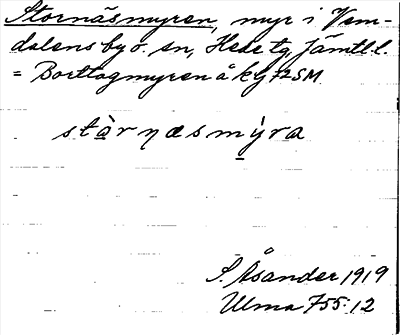 Stornäsmyren, myr i Vem-
dalens by o. sn, Hede tg, Jämtl. l.
= Borttogmyren å kg 72SM.
stàrnæsmỳra
S. Åsander 1919
Ulma 755:12